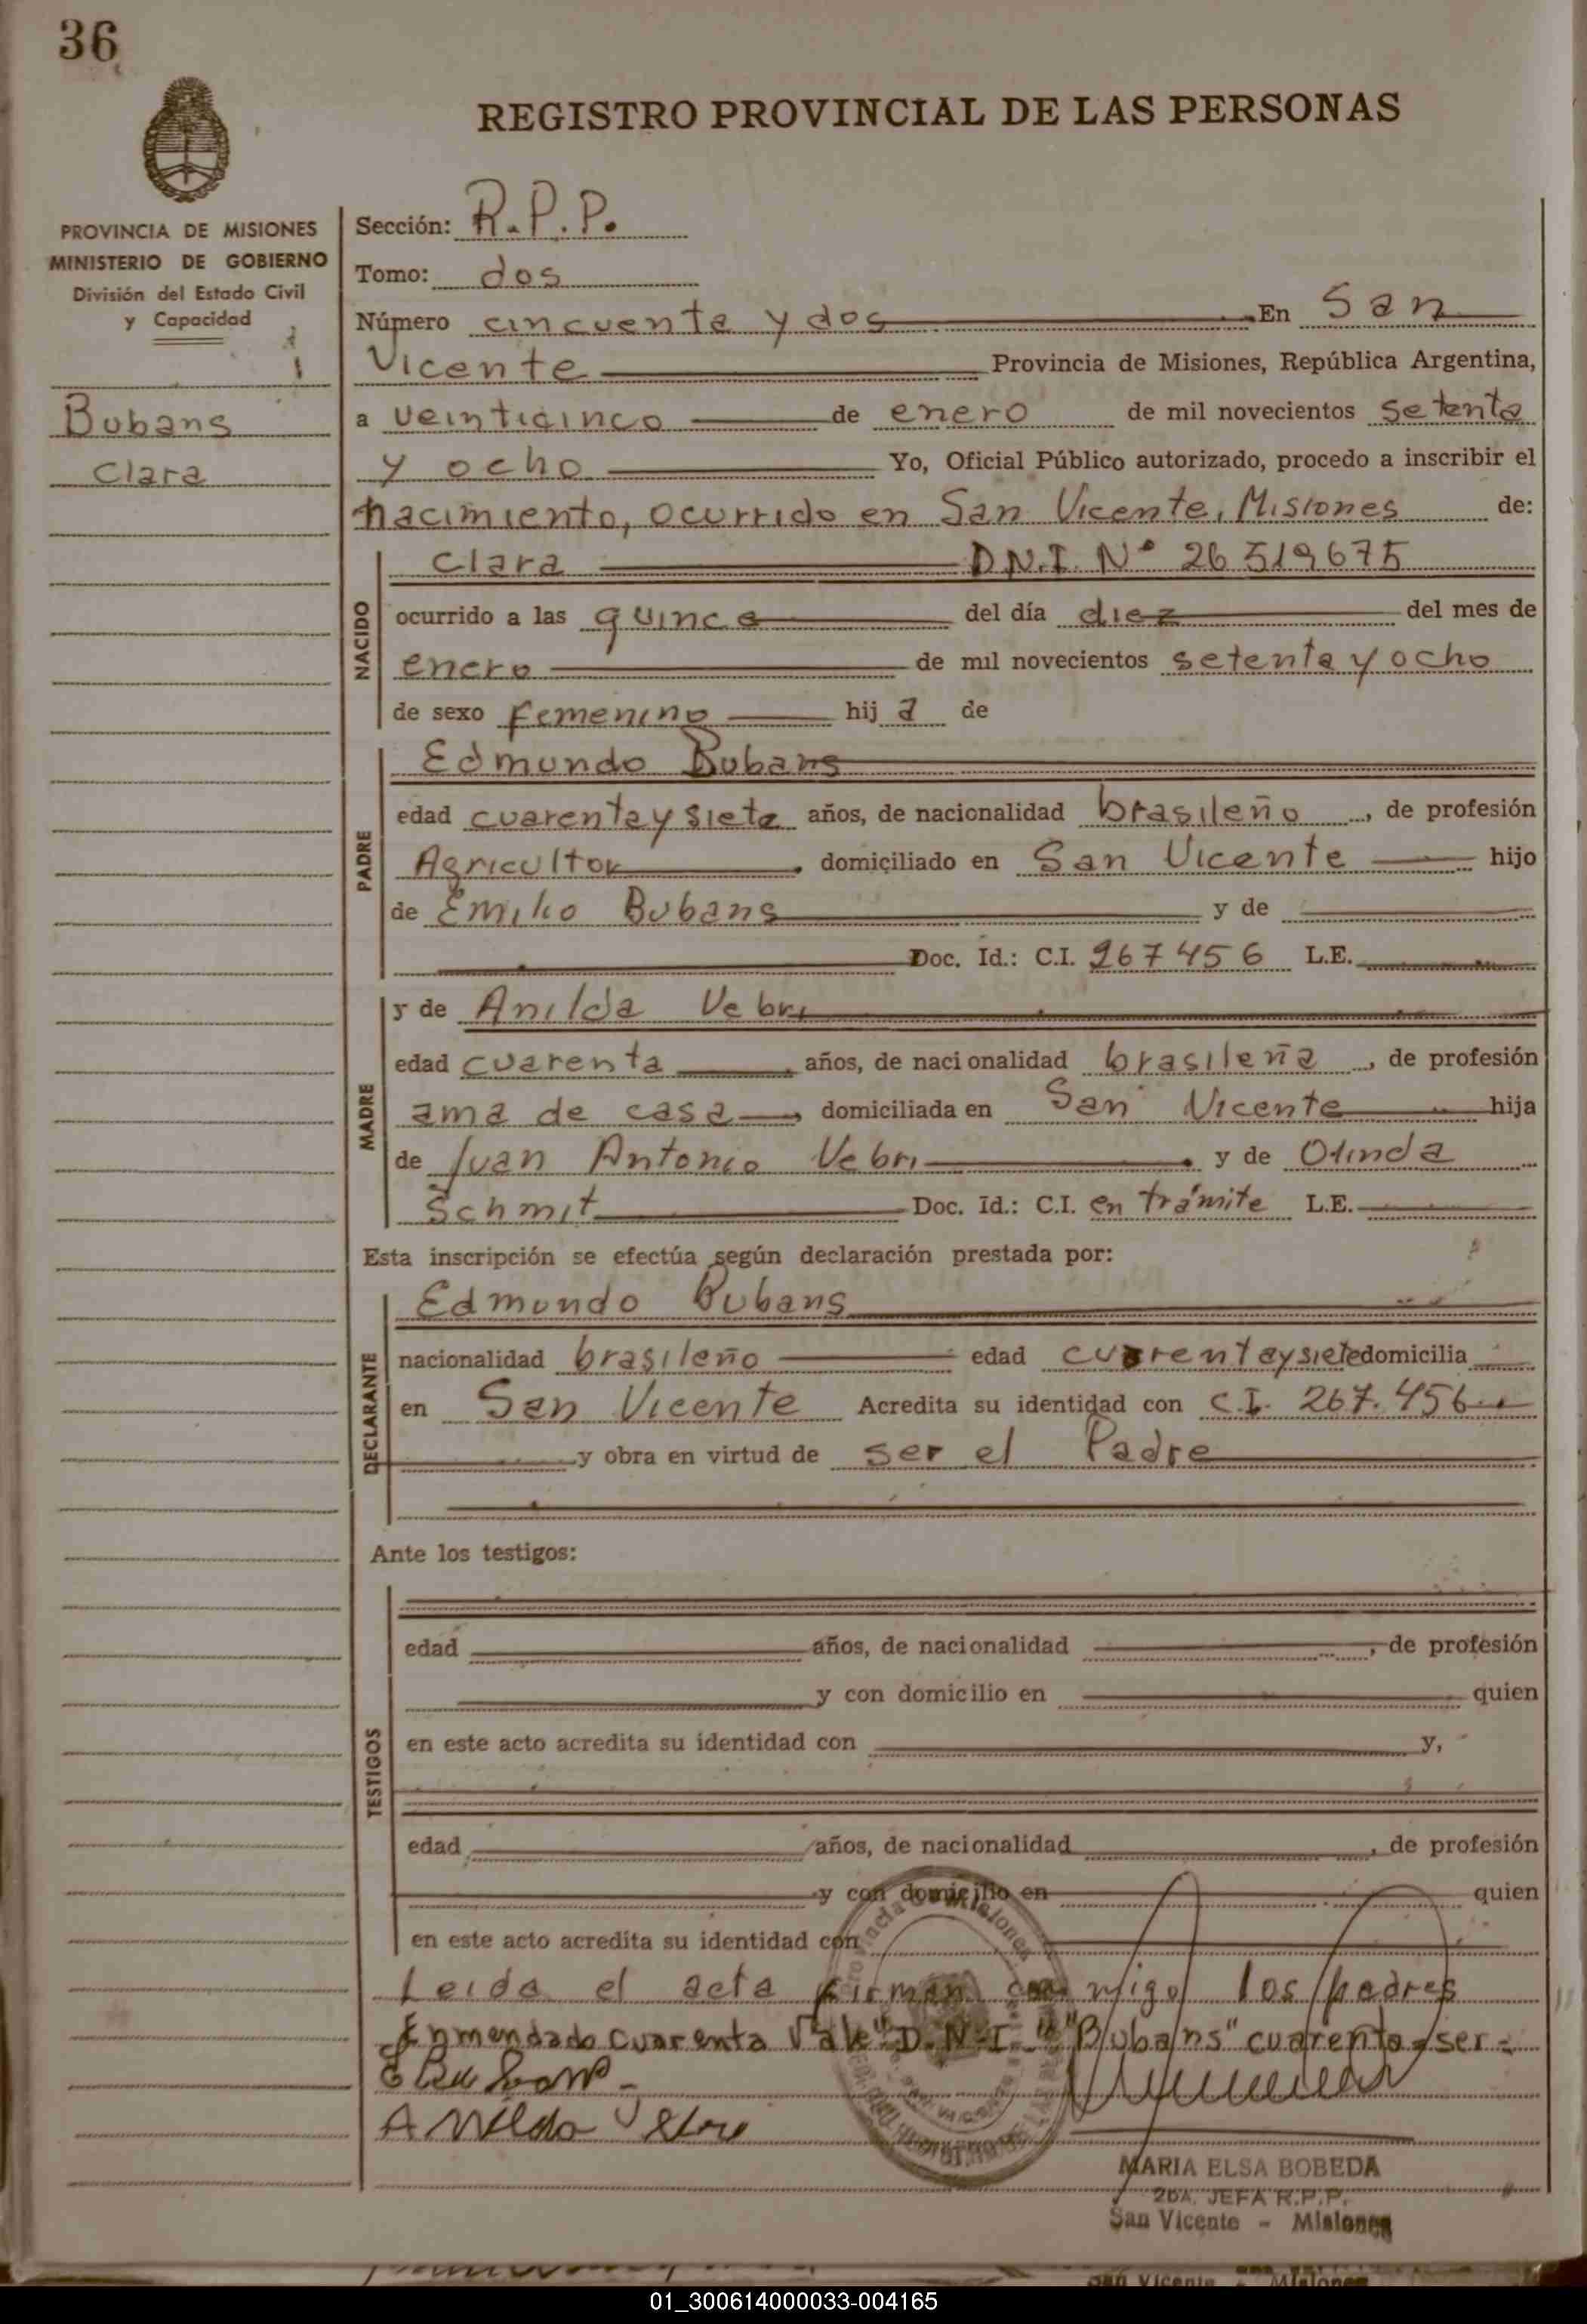 36
REGISTRO PROVINCIAL DE LAS PERSONAS
PROVINCIA DE MISIONES
MINISTERIO DE GOBIERNO
División del Estado Civil
y Capacidad
Bubans
Clara
Sección: R.P.P.
Tomo: dos
Número cincuenta y dos En San
Vicente Provincia de Misiones, República Argentina,
a veinticinco de enero de mil novecientos setenta
y ocho Yo, Oficial Público autorizado, procedo a inscribir el
nacimiento, ocurrido en San Vicente, Misiones de:
NACIDO
Clara D.N.I. Nº 26 519675
ocurrido a las quince del día diez del mes de
enero de mil novecientos setenta y ocho
de sexo femenino hij a de
PADRE
Edmundo Bubans
edad cuarenta y siete años, de nacionalidad brasileño, de profesión
Agricultor, domiciliado en San Vicente hijo
de Emilio Bubans y de
Doc. Id.: C.I. 267456 L.E.
MADRE
y de Anilda Vebri
edad cuarenta, años, de nacionalidad brasileña, de profesión
ama de casa, domiciliada en San Vicente hija
de Juan Antonio Vebri y de Olinda
Schmit Doc. Id.: C.I. en trámite L.E.
Esta inscripción se efectúa según declaración prestada por:
DECLARANTE
Edmundo Bubans
nacionalidad brasileño edad cuarenta y siete domicilia
en San Vicente Acredita su identidad con C.I. 267.456
y obra en virtud de ser el Padre
Ante los testigos:
TESTIGOS
edad años, de nacionalidad , de profesión
y con domicilio en quien
en este acto acredita su identidad con y,
edad años, de nacionalidad , de profesión
y con domicilio en quien
en este acto acredita su identidad con
Leida el acta firman con migo los padres
Enmendado cuarenta Vale "D.N.I." "Bubans" cuarenta-ser-
Anilda Vebri
MARIA ELSA BOBEDA
2DA. JEFA R.P.P.
San Vicente - Misiones
01_300614000033-004165